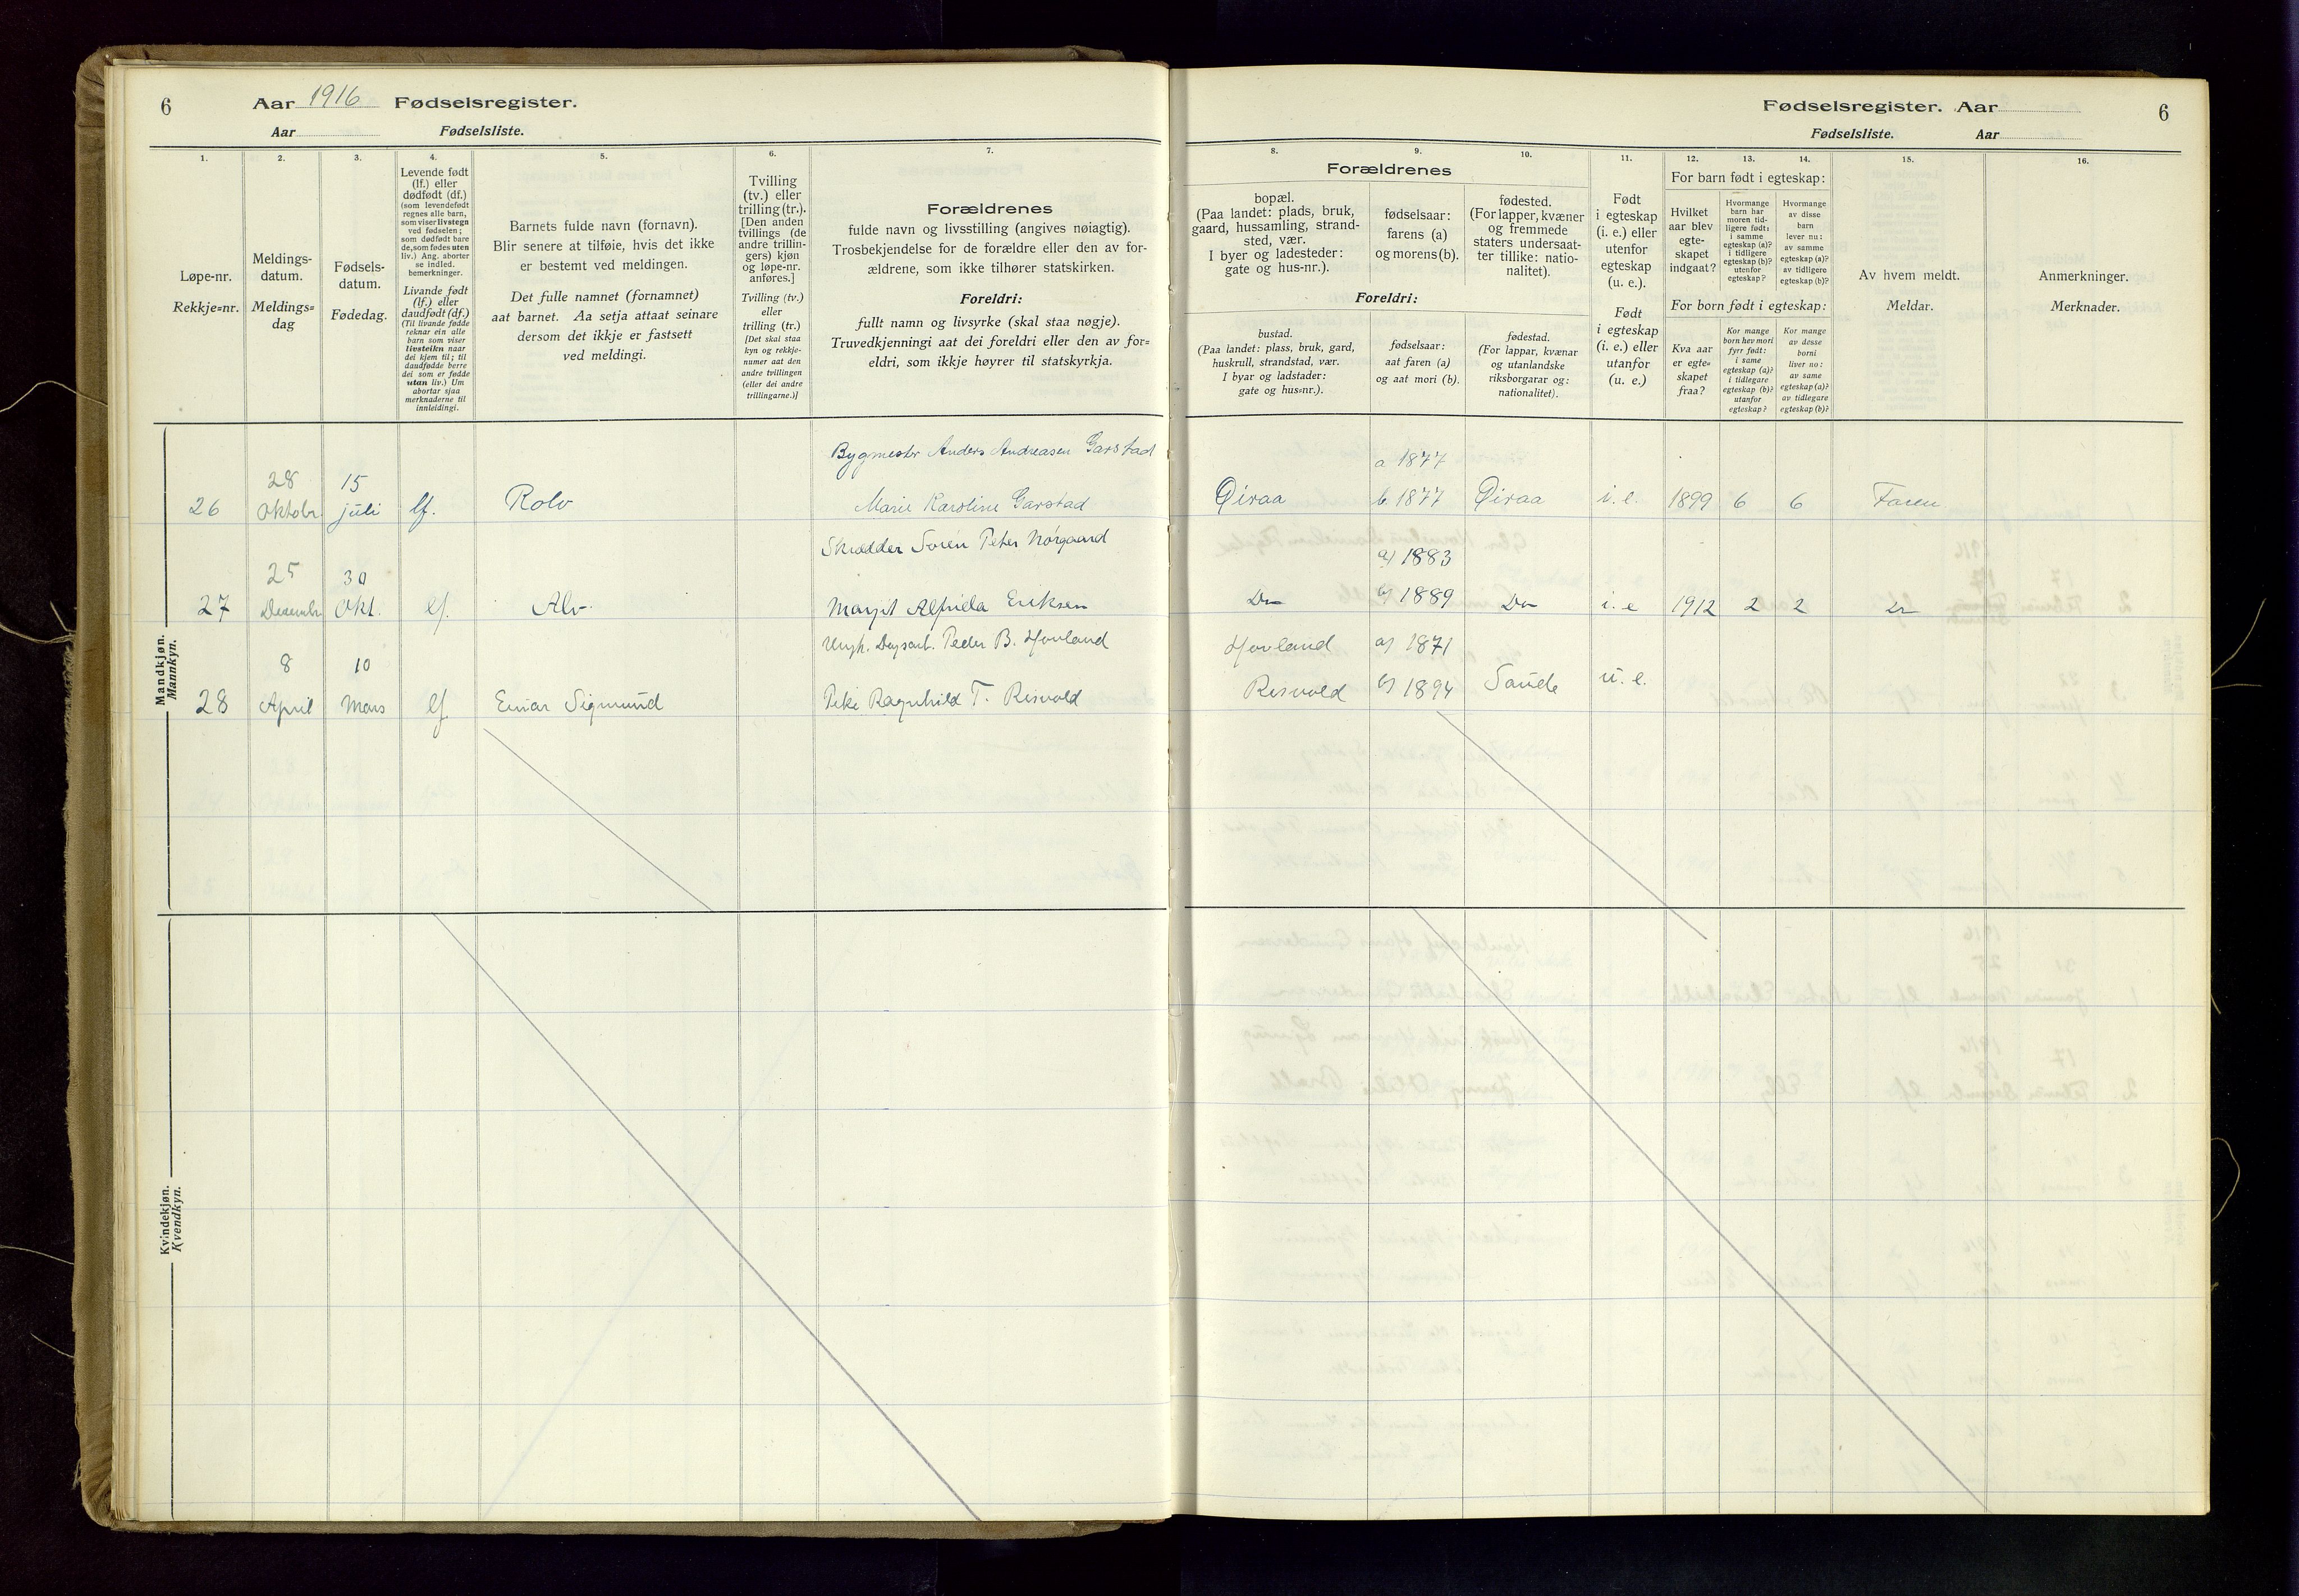 6 Aar 1916 Fødselsregister.
Aar Fødselsliste.
1.
Løpe-nr.
Rekkje=nr.
2.
Meldings-
datum.
Meldings=
dag
3.
Fødsels-
datum.
Fødedag.
4.
Levende født
(lf.) eller
dødfødt (df.)
(som levendefødt
regnes alle barn,
som viser livstegn
ved fødselen;
som dødfødt bare
de, som fødes uten
liv.) Ang. aborter
se indled.
bemerkninger.
Livande født
(lf.) eller
daudfødt (df.)
(Til livande fødde
reknar ein alle
barn som viser
livsteikn naar
dei kjem til; til
daudfødde berre
dei som er fødde
utan liv.) Um
abortar sjaa
merknaderne til
innleidingi.
5.
Barnets fulde navn (fornavn).
Blir senere at tilføie, hvis det ikke
er bestemt ved meldingen.
Det fulle namnet (fornamnet)
aat barnet. Aa setja attaat seinare
dersom det ikkje er fastsett
ved meldingi.
6.
Tvilling
(tv.) eller
trilling (tr.).
[Den anden
tvillings (de
andre trillin-
gers) kjøn
og løpe-nr.
anføres.]
Tvilling (tv.)
eller
trilling (tr.)
[Det skal staa
kyn og rekkje-
numer aat den
andre tvillingen
(eller dei andre
trillingarne.)]
7.
Forældrenes
fulde navn og livsstilling (angives nøiagtig).
Trosbekjendelse for de forældre eller den av for-
ældrene, som ikke tilhører statskirken.
Foreldri:
fullt namn og livsyrke (skal staa nøgje).
Truvedkjenningi aat dei foreldri eller den av for=
eldri, som ikkje høyrer til statskyrkja.
Mandkjøn.
Mannkyn.
Bygmester Anders Andreasen Garstad
28 15
26 Oktobr juli lf. Rolv Marie Karoline Garstad
Skrædder Søren Peter Nørgaard
25 30
27 Decembr Okt. lf. Alv. Margit Alfrida Eriksen
Ungk. Dagsarb. Peder B. Hovland
8 10
28 April Mars lf Einar Sigmund Pike Ragnhild T. Risvold
Kvindekjøn.
Kvendkyn.
Fødselsregister. Aar 6
Fødselsliste. Aar
8.
Forældrenes
bopæl.
(Paa landet: plads, bruk,
gaard, hussamling, strand-
sted, vær.
I byer og ladesteder:
gate og hus-nr.).
Foreldri:
bustad.
(Paa landet: plass, bruk, gard,
huskrull, strandstad, vær.
I byar og ladstader:
gate og hus=nr.).
9.
fødselsaar:
farens (a)
og morens (b).
fødselsaar:
aat faren (a)
og aat mori (b).
10.
fødested.
(For lapper, kvæner
og fremmede
staters undersaat-
ter tillike: natio-
nalitet).
fødestad.
(For lappar, kvænar
og utanlandske
riksborgarar og:
nationalitet).
11.
Født
i egteskap
(i. e.) eller
utenfor
egteskap
(u. e.).
Født
i egteskap
(i. e.) eller
utanfor
(u. e.)
12. 13. 14.
For barn født i egteskap:
Hvilket
aar blev
egte-
skapet
indgaat?
Hvormange
barn har
moren tid-
ligere født:
i samme
egteskap (a)?
i tidligere
egteskap (b)?
utenfor
egteskap?
Hvormange
av disse
barn
lever nu:
av samme
egteskap (a)?
av tidligere
egteskap (b)?
For born født i egteskap:
Kva aar
er egte=
skapet
fraa?
Kor mange
born hev mori
fyrr født:
i same
egteskap (a)?
i tidlegare
egteskap (b)?
utanfor
egteskap?
Kor mange
av desse
borni
liver no:
av same
egteskap (a)?
av tidlegare
egteskap (b)?
15.
Av hvem meldt.
Meldar.
16.
Anmerkninger.
Merknader.
a 1877
Eiraa b. 1877 Eiraa i. e. 1899 6 6 Faren
a) 1883
Do b) 1889 Do i. e 1912 2 2
Hovland a) 1871
Risvold b) 1894 Sande u. e.